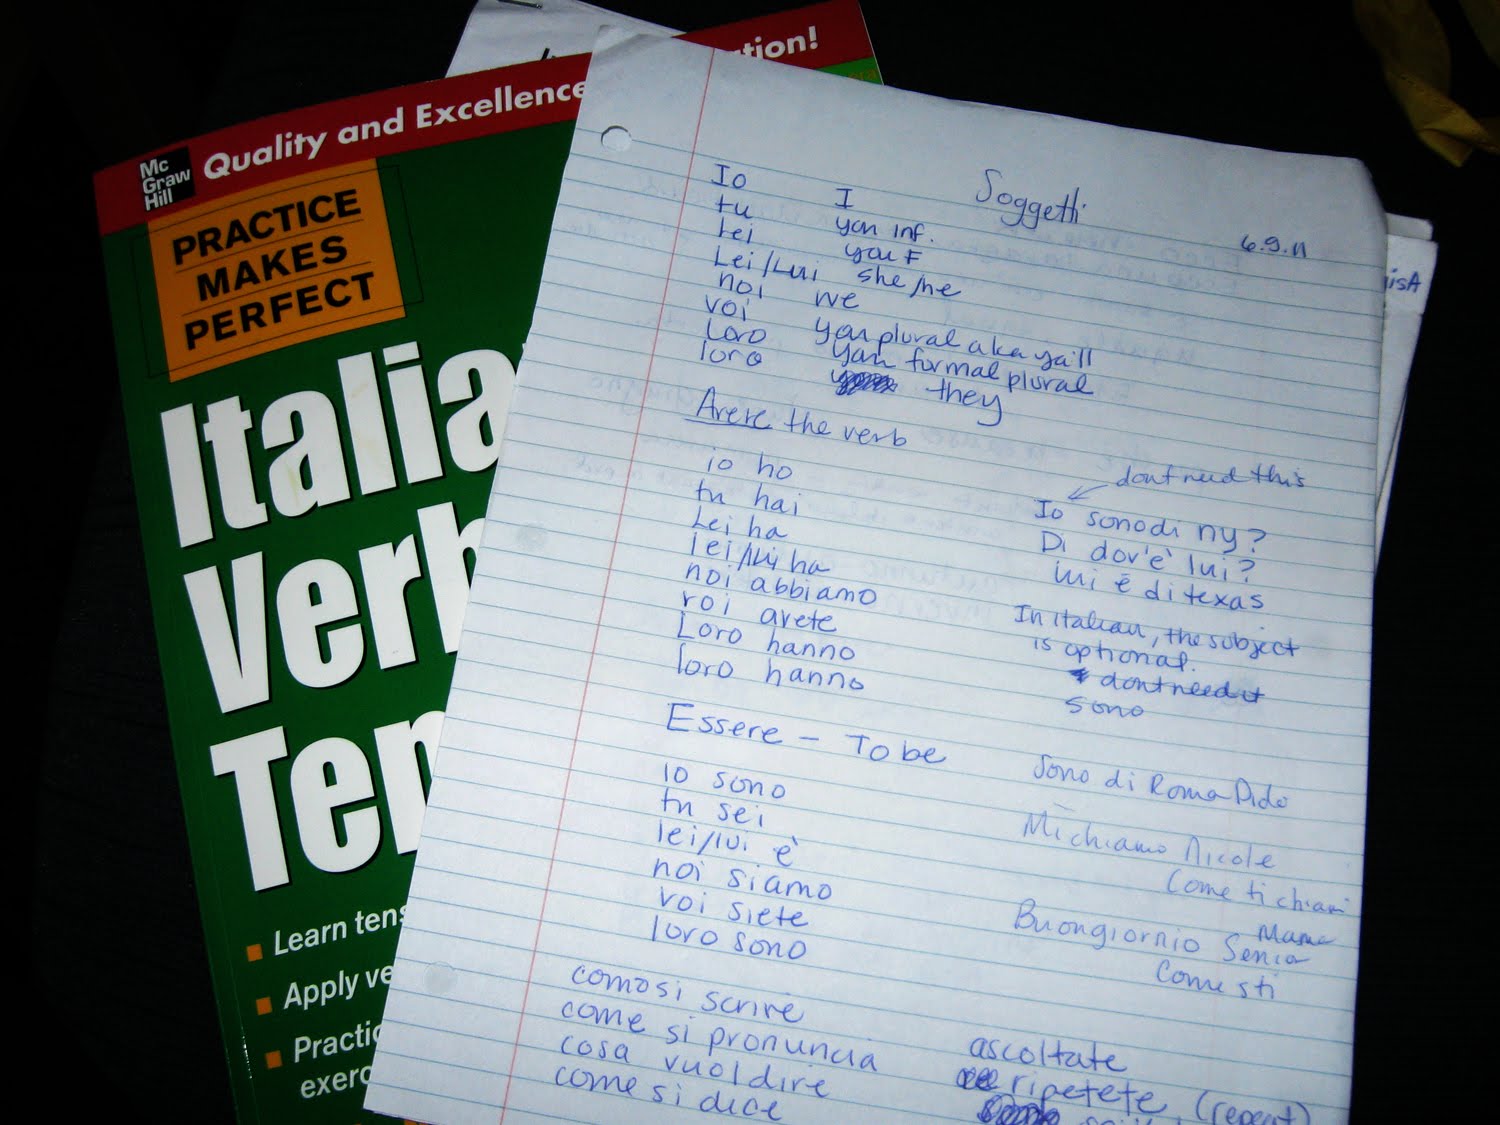 Quality and Excellence
tion!
Mc
Graw
Hill
PRACTICE
MAKES
PERFECT
Italia
Verb
Ten
Learn tens
Apply ve
Practic
exerc
Soggetti
6.9.11
Io I
tu you inf.
Lei you F
Lei/Lui she/he
noi we
voi you plural aka ya'll
Loro you formal plural
loro they
Avere the verb
io ho
tu hai
Lei ha
lei/lui ha
noi abbiamo
voi avete
Loro hanno
loro hanno
dont need this
Io sono di ny?
Di dov'è lui?
lui è di texas
In italian, the subject
is optional.
dont need it
sono
Essere - To be
io sono
tu sei
lei/lui è
noi siamo
voi siete
loro sono
Sono di Roma
Mi chiamo Nicole
Come ti chiami
Buongiornio
Come sti
como si scrire
come si pronuncia
cosa vuol dire
come si dice
ascoltate
ripetete (repeat)